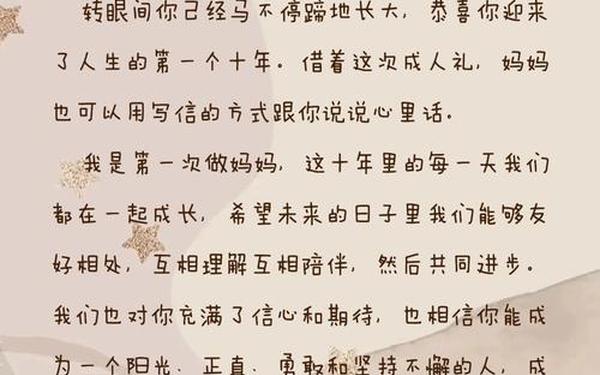 转眼间你已经马不停蹄地长大，恭喜你迎来
了人生的第一个十年。借着这次成人礼，妈妈
也可以用写信的方式跟你说说心里话。
我是第一次做妈妈，这十年里的每一天我们
都在一起成长，希望未来的日子里我们能够友
好相处，互相理解互相陪伴，然后共同进步。
我们也对你充满了信心和期待，也相信你能成
为一个阳光、正直、勇敢和坚持不懈的人，成